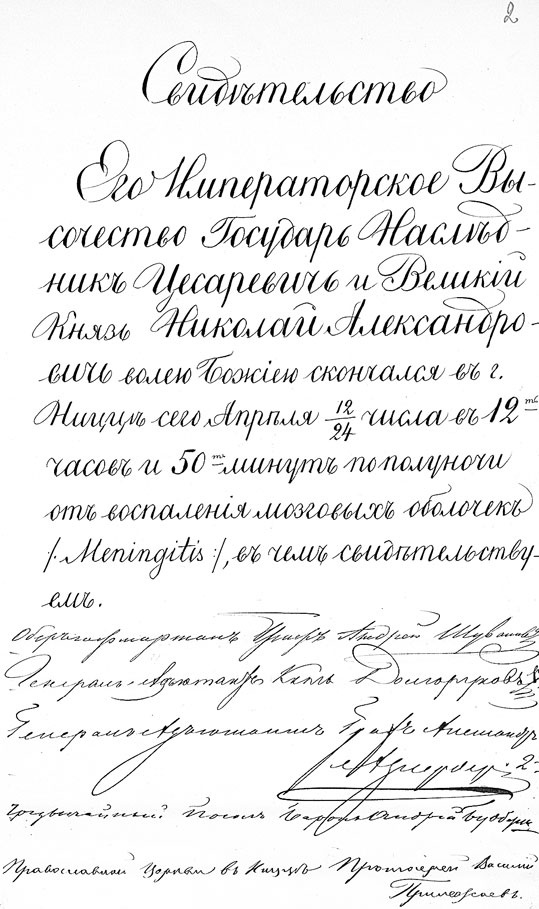 2
Свидѣтельство
Его Императорское Вы-
сочество Государь Наслѣд-
никъ Цесаревичь и Великій
Князь Николай Александро-
вичь волею Божіею скончался въ г.
Ниццѣ сего Апрѣля 12/24 числа въ 12-ть
часовъ и 50-ть минутъ пополуночи
отъ воспаленія мозговыхъ оболочекъ
/: Meningitis :/, въ чемъ свидѣтельству-
емъ.
Оберъ-гофмаршалъ Графъ Андрей Шуваловъ
Генералъ-Адъютантъ Князь Долгоруковъ
Генералъ-Адъютантъ Графъ Александръ
Адлербергъ 2-
Чрезвычайный Посолъ Баронъ Андрей Будбергъ
Православной Церкви въ Ниццѣ Протоіерей Василій
Прилежаевъ.